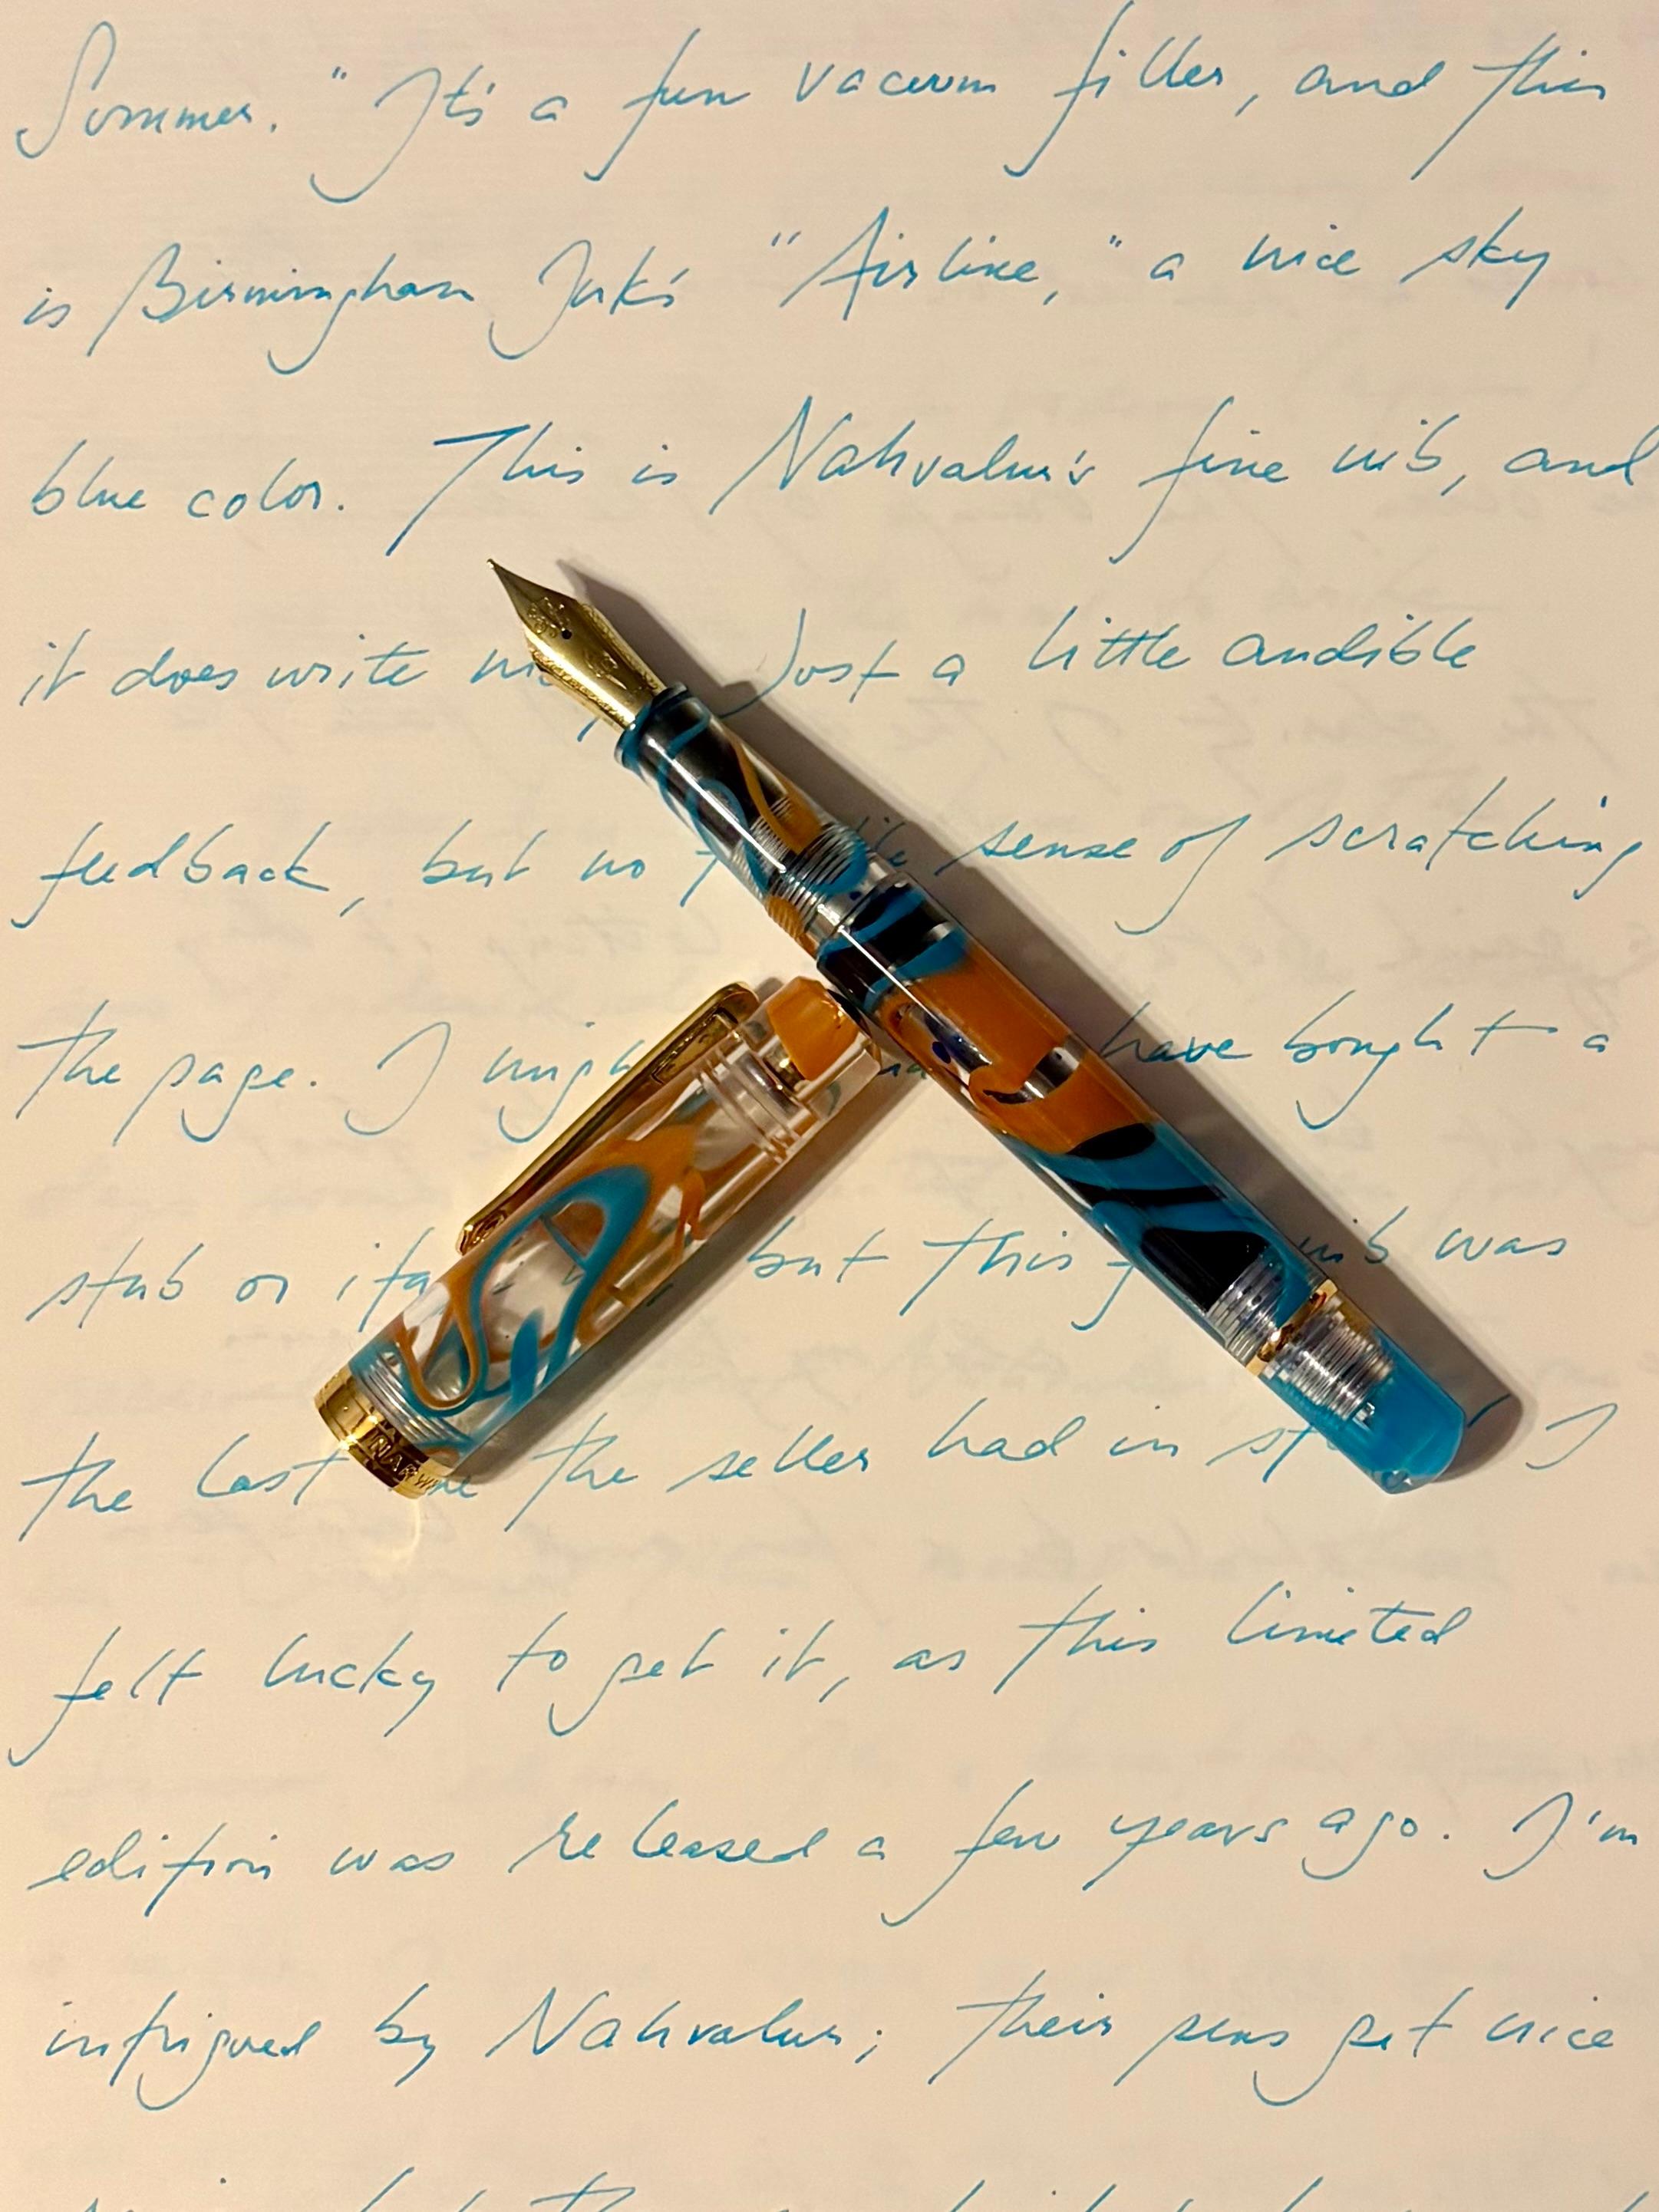 Sommer." It's a fun vacuum filler, and this
is Birmingham Ink's "Airline," a nice sky
blue color. This is Nahvalur's fine nib, and
it does write Just a little audible
feedback, but no sense of scratching
the page. I have bought a
stub or but this nib was
the last the seller had in I
felt lucky to get it, as this limited
edition was released a few years ago. I'm
intrigued by Nahvalur; their pens get nice